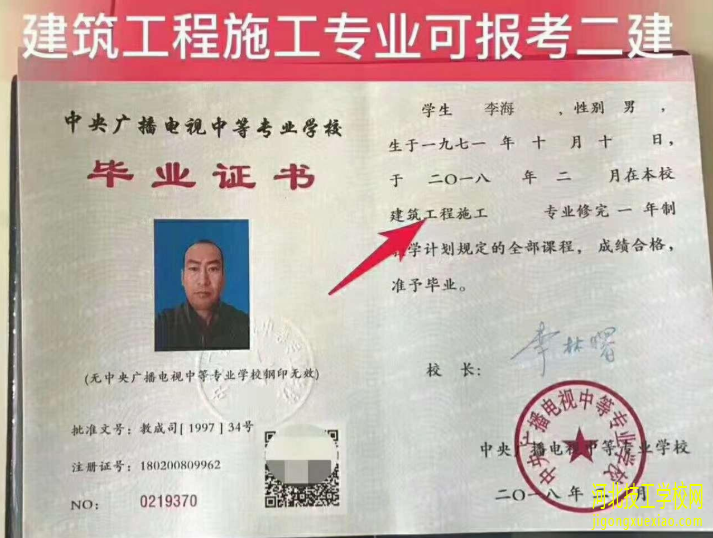 建筑工程施工专业可报考二建
中央广播电视中等专业学校
毕业证书
(无中央广播电视中等专业学校钢印无效)
批准文号：教成司[1997]34号
注册证号：180200809962
NO： 0219370
学生 李海 ，性别 男 ，
生于一九七一 年 十 月 十 日，
于 二〇一八 年 二 月在本校
建筑工程施工 专业修完 一 年制
学计划规定的全部课程，成绩合格，
准予毕业。
校 长：
中央广播电视中等专业学校
中央广播电视中等专业学校
二〇一八 年 月
河北技工学校网